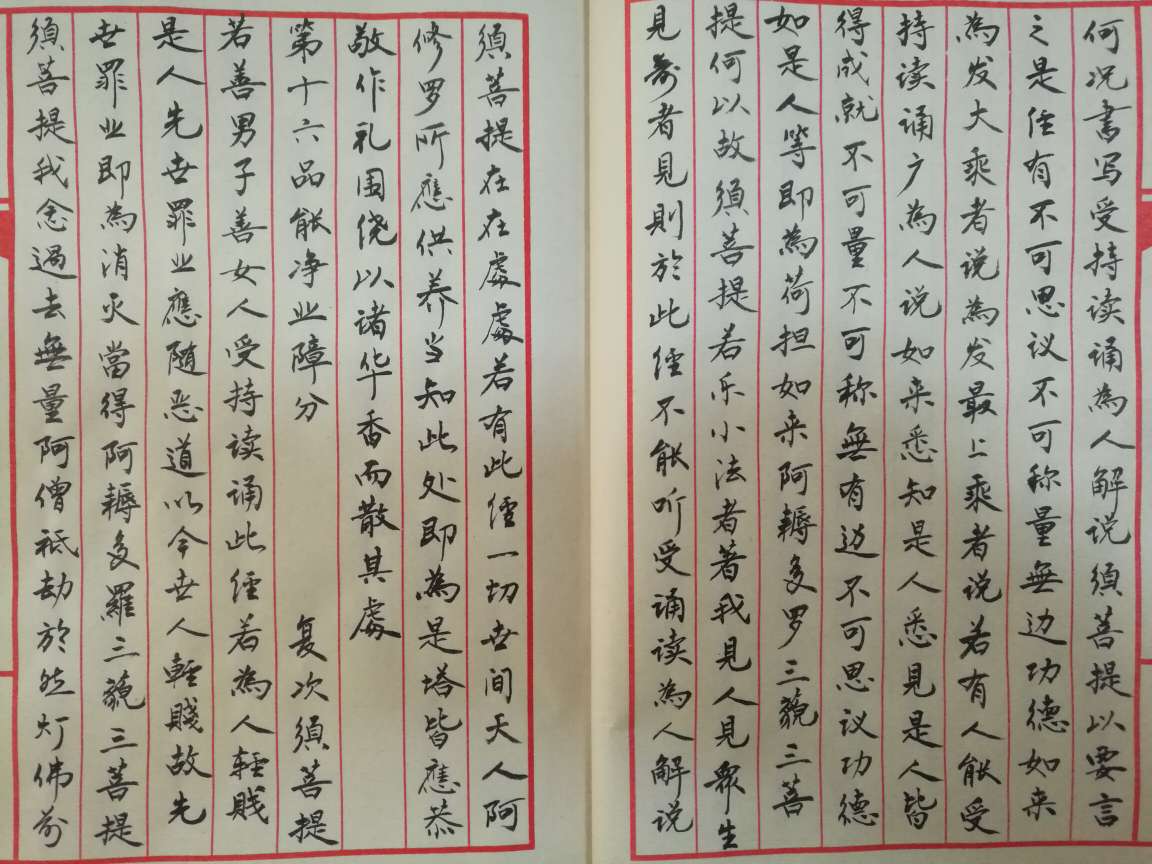 何况書写受持读诵為人解说须菩提以要言
之是经有不可思议不可称量無边功德如来
為发大乘者说為发最上乘者说若有人能受
持读诵广為人说如来悉知是人悉見是人皆
得成就不可量不可称無有边不可思议功德
如是人等即為荷担如来阿耨多罗三藐三菩
提何以故须菩提若乐小法者著我見人見衆生
見寿者見則於此经不能听受诵读為人解说
須菩提在在處處若有此经一切世间天人阿
修罗所應供养当知此处即為是塔皆應恭
敬作礼围绕以诸华香而散其處
第十六品能净业障分 复次須菩提
若善男子善女人受持读诵此经若為人輕賤
是人先世罪业應随恶道以今世人輕賤故先
世罪业即為消灭當得阿耨多羅三藐三菩提
須菩提我念過去無量阿僧祇劫於然灯佛前